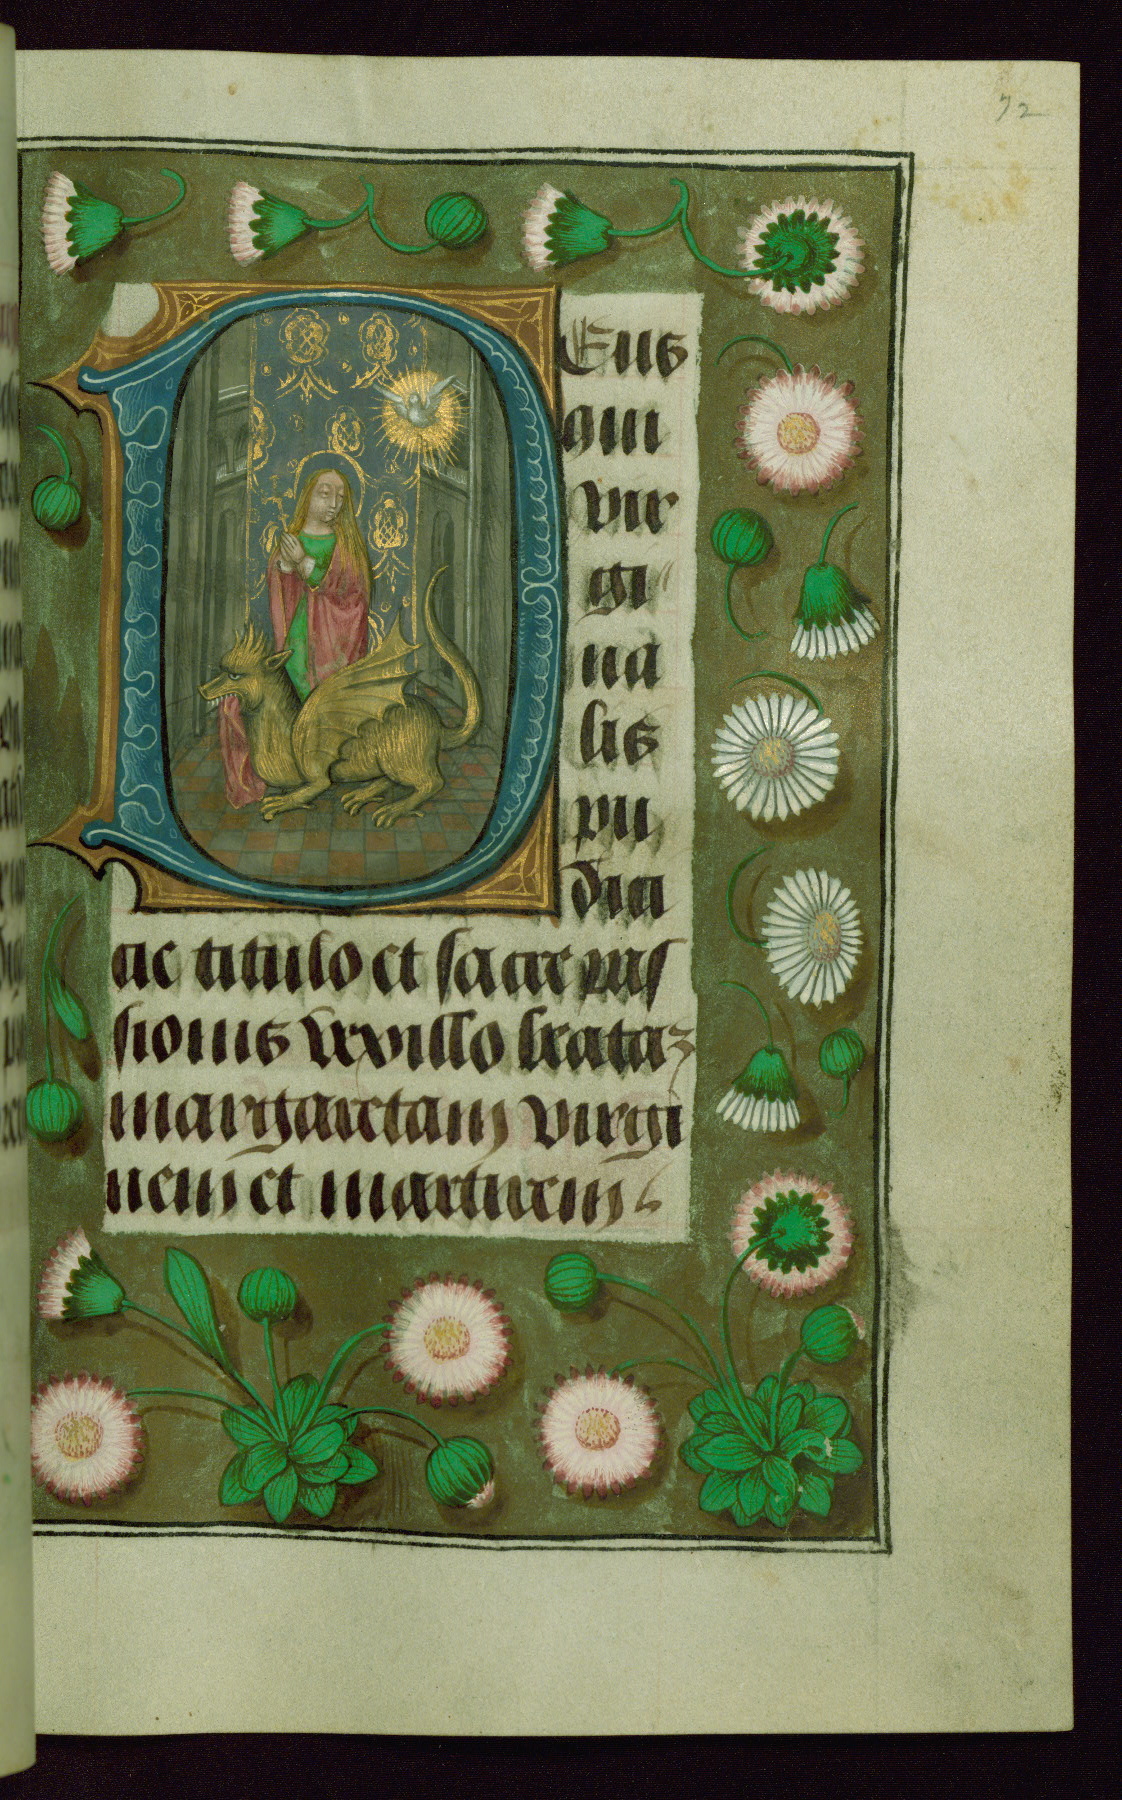 72
DEus
qui
vir
gi
na
lis
pu
dici
cie titulo et sacre pas
sionis vexillo beataʒ
margaretam virgi
nem et martirem